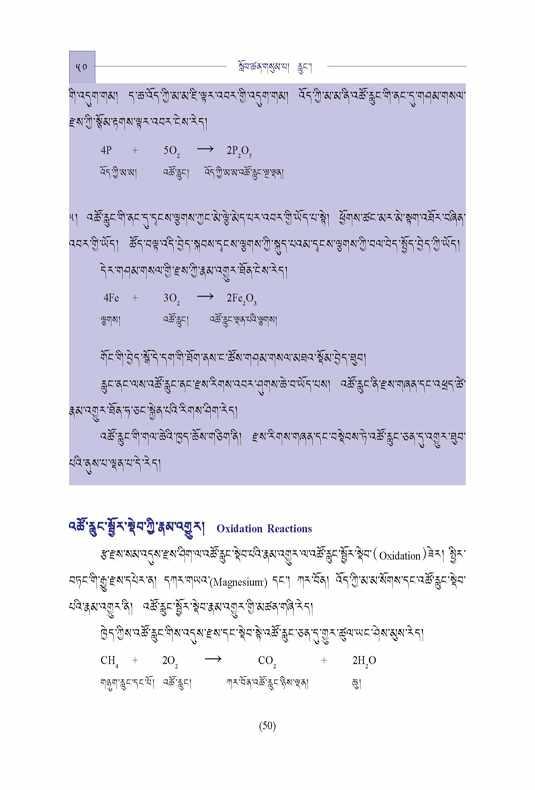 ༥༠
སློབ་ཚན་གསུམ་པ། རླུང་།
གི་འདུག་གམ། ད་ཆ་འོད་ཀྱི་མ་མ་ཇི་ལྟར་འབར་གྱི་འདུག་གམ། འོད་ཀྱི་མ་མ་ནི་འཚོ་རླུང་གི་ནང་དུ་གཤམ་གསལ་
རྫས་ཀྱི་སྙོམ་རྟགས་ལྟར་འབར་ངེས་རེད།
4P + 5O2 → 2P2O5
འོད་ཀྱི་མ་མ། འཚོ་རླུང་། འོད་ཀྱི་མ་མ་འཚོ་རླུང་ལྔ་ལྡན།
༥། འཚོ་རླུང་གི་ནང་དུ་དྭངས་ལྕགས་ཀྱང་མེ་ལྕེ་མེད་པར་འབར་གྱི་ཡོད་པ་སྟེ། ཕྱོགས་ཚང་མར་མེ་སྟག་འཐོར་བཞིན་
འབར་གྱི་ཡོད། ཚོད་བལྟ་འདི་བྱེད་སྐབས་དྭངས་ལྕགས་ཀྱི་སྐུད་པའམ་དྭངས་ལྕགས་ཀྱི་བལ་བེད་སྤྱོད་བྱེད་ཀྱི་ཡོད།
དེར་གཤམ་གསལ་གྱི་རྫས་ཀྱི་རྣམ་འགྱུར་ཐོན་ངེས་རེད།
4Fe + 3O2 → 2Fe2O3
ལྕགས། འཚོ་རླུང་། འཚོ་རླུང་ལྡན་པའི་ལྕགས།
གོང་གི་བྱེད་སྒོ་དེ་དག་གི་ཐོག་ནས་ང་ཚོས་གཤམ་གསལ་མཐའ་སྡོམ་བྱེད་ཐུབ།
རླུང་ནང་ལས་འཚོ་རླུང་ནང་རྫས་རིགས་འབར་ཤུགས་ཆེ་བ་ཡོད་པས། འཚོ་རླུང་ནི་རྫས་གཞན་དང་འཕྲད་ཚེ་
རྣམ་འགྱུར་ཐོན་ཧ་ཅང་སྐྱེན་པའི་རིགས་ཤིག་རེད།
འཚོ་རླུང་གི་གལ་ཆེའི་ཁྱད་ཆོས་གཅིག་ནི། རྫས་རིགས་གཞན་དང་བསྡེབས་ཏེ་འཚོ་རླུང་ཅན་དུ་འགྱུར་ཐུབ་
པའི་ནུས་པ་ལྡན་པ་དེ་རེད།
འཚོ་རླུང་སྦྱོར་སྡེབ་ཀྱི་རྣམ་འགྱུར། Oxidation Reactions
རྩ་རྫས་སམ་འདུས་རྫས་ཤིག་ལ་འཚོ་རླུང་སྡེབ་པའི་རྣམ་འགྱུར་ལ་འཚོ་རླུང་སྦྱོར་སྡེབ་(Oxidation)ཟེར། སྤྱིར་
བཏང་གི་རྒྱུ་རྫས་དཔེར་ན། དཀར་གཡའ་(Magnesium) དང་། ཀར་བོན། འོད་ཀྱི་མ་མ་སོགས་དང་འཚོ་རླུང་སྡེབ་
པའི་རྣམ་འགྱུར་ནི། འཚོ་རླུང་སྦྱོར་སྡེབ་རྣམ་འགྱུར་གྱི་མཚན་གཞི་རེད།
ཁྱེད་ཀྱིས་འཚོ་རླུང་གིས་འདུས་རྫས་དང་སྡེབ་སྟེ་འཚོ་རླུང་ཅན་དུ་གྱུར་ཚུལ་ཡང་ཤེས་མུས་རེད།
CH4 + 2O2 → CO2 + 2H2O
གཉྱག་རླུང་དང་པོ། འཚོ་རླུང་། ཀར་བོན་འཚོ་རླུང་ཉིས་ལྡན། ཆུ།
(50)